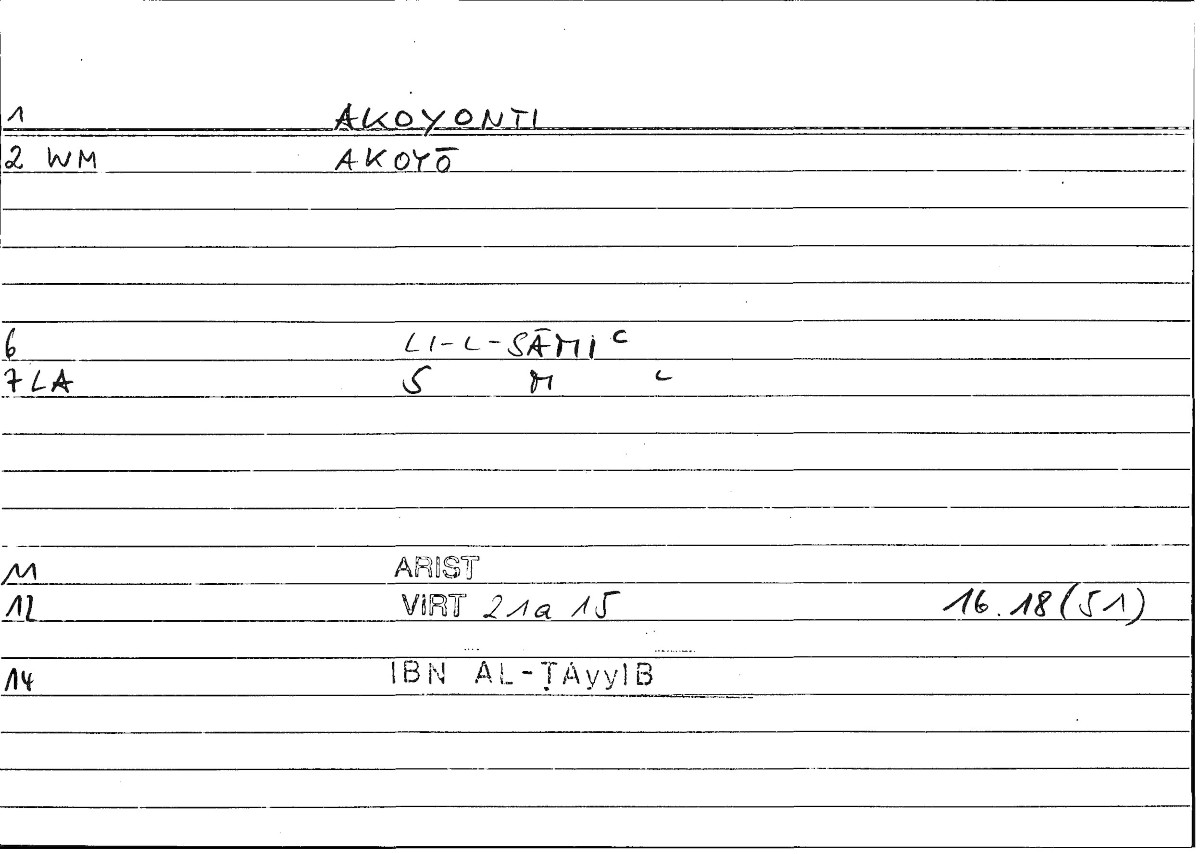 1 AKOYONTI
2 WM AKOYŌ
6 LI-L-SĀMIᶜ
7 LA S M ᶜ
11 ARIST
12 VIRT 21a 15 16.18(51)
14 IBN AL-ṬAyyIB